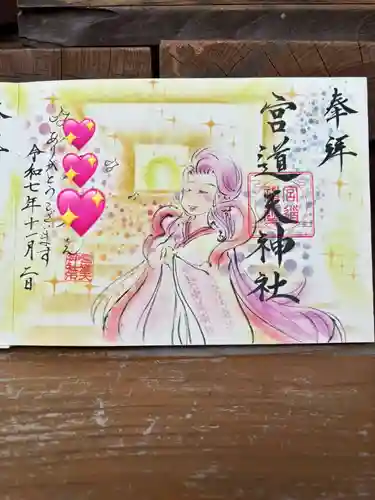 奉拝
宮道天神社
ありがとうございます
令和七年十一月二日